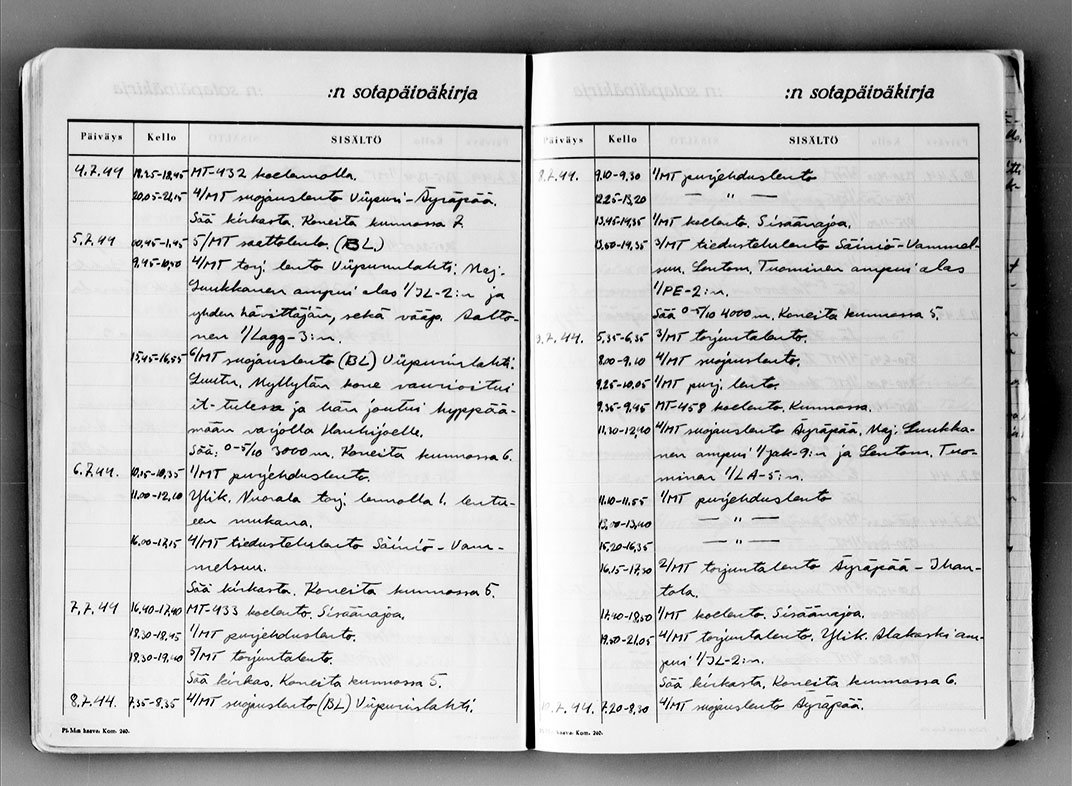 :n sotapäiväkirja
Päiväys Kello SISÄLTÖ
4.7.44 18.35-18.45 MT-432 koelennolla.
20.05-21.15 4/MT suojauslento Viipuri-Äyräpää.
Sää kirkasta. Koneita kunnossa 7
5.7.44 00.45-1.45 5/MT saattolento. (BL)
9.45-10.50 4/MT torj. lento Viipurinlahti. Maj.
Luukkanen ampui alas 1/JL-2:n ja
yhden hävittäjän, sekä vääp. Aalto-
nen 1/Lagg-3:n.
15.45-16.55 6/MT suojauslento (BL) Viipurinlahti.
Luutn. Myllylän kone vaurioitui
it-tulessa ja hän joutui hyppää-
mään varjolla Hauhijoelle.
Sää: 0-5/10 3000 m. Koneita kunnossa 6.
6.7.44. 10.25-10.35 1/MT purjehduslento.
11.00-12.10 Ylik. Nuorala torj. lennolla 1. lentu-
een mukana.
16.00-17.15 4/MT tiedustelulento Säiniö-Vam-
melsuu.
Sää kirkasta. Koneita kunnossa 5.
7.7.44 16.40-17.40 MT-433 koelento. Sisäänajoa.
18.30-18.45 1/MT purjehduslento.
18.30-19.40 5/MT torjuntalento.
Sää kirkas. Koneita kunnossa 5.
8.7.44. 7.35-8.35 4/MT suojauslento (BL) Viipurinlahti.
Pl. Min kaava. Kom. 260.
:n sotapäiväkirja
Päiväys Kello SISÄLTÖ
8.7.44. 9.10-9.30 1/MT purjehduslento
12.25-13.20 — " —
13.45-14.35 1/MT koelento. Sisäänajoa.
13.50-14.35 3/MT tiedustelulento Säiniö-Vammel-
suu. Lentom. Tuominen ampui alas
1/PE-2:n.
Sää 0-5/10 4000 m. Koneita kunnossa 5.
9.7.44. 5.35-6.35 3/MT torjuntalento.
8.00-9.10 4/MT suojauslento.
9.25-10.05 1/MT purj. lento.
9.35-9.45 MT-458 koelento. Kunnossa.
11.30-12.40 4/MT suojauslento Äyräpää. Maj. Luukka-
nen ampui 1/Jak-9:n ja Lentom. Tuo-
minen 1/LA-5:n.
11.10-11.55 1/MT purjehduslento
13.00-13.40 — " —
15.20-16.35 — " —
16.15-17.30 2/MT torjuntalento Äyräpää - Ihan-
tola.
17.40-18.50 1/MT koelento. Sisäänajoa.
19.50-21.05 4/MT torjuntalento. Ylik. Alakoski am-
pui 1/JL-2:n.
Sää kirkasta. Koneita kunnossa 6.
7.44. 7.20-8.30 4/MT suojauslento Äyräpää.
kaava. Kom. 260.